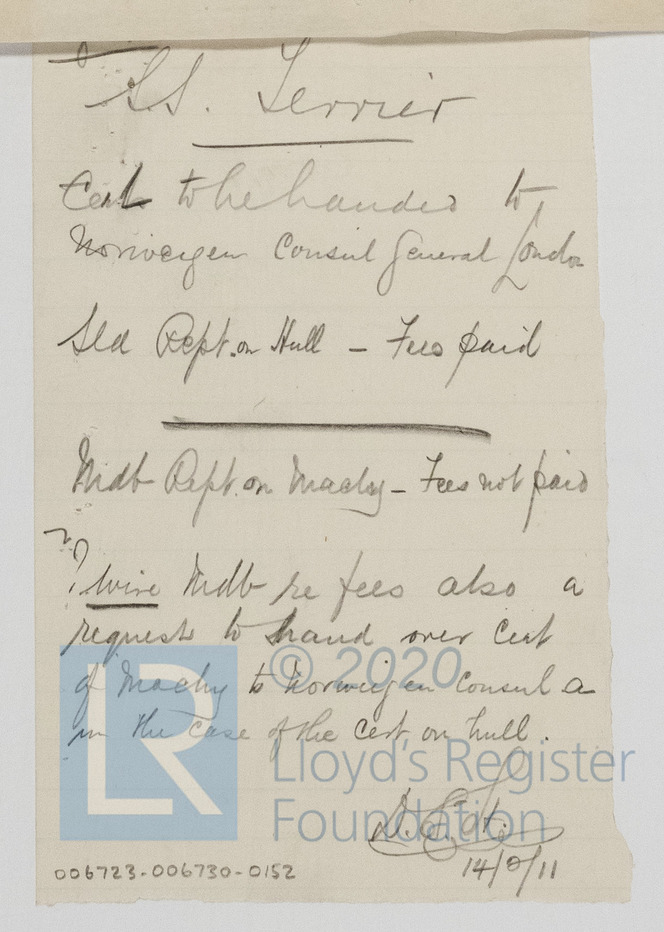 S.S. Terrier
Cert to be handed to
Norwegen Consul General London
Sld Rept. on Hull - Fees paid
Mdb Rept. on Machy - Fees not paid
? wire Mdb re fees also a
request to hand over Cert
of Machy to Norwegen Consul a
in the case of the Cert on hull.
LR
© 2020
Lloyd's Register
Foundation
14/9/11
006723-006730-0152